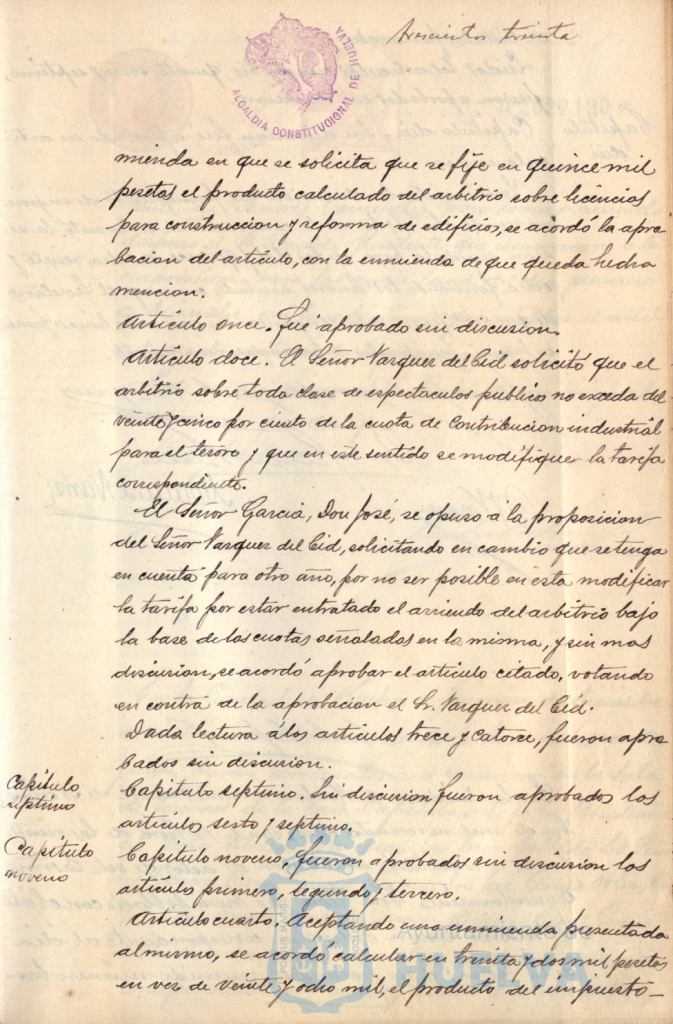 trescientos treinta
ALCALDIA CONSTITUCIONAL DE HUELVA
mienda en que se solicita que se fije en quince mil
pesetas el producto calculado del arbitrio sobre licencias
para construccion y reforma de edificios, se acordó la apro-
bacion del artículo, con la enmienda de que queda hecha
mencion.
Artículo once. Fué aprobado sin discusion.
Artículo doce. El Señor Vazquez del Cid solicitó que el
arbitrio sobre toda clase de espectaculos publico no exceda del
veinte y cinco por ciento de la cuota de Contribucion industrial
para el tesoro y que en este sentido se modifique la tarifa
correspondiente.
El Señor Garcia, Don José, se opuso á la proposicion
del Señor Vazquez del Cid, solicitando en cambio que se tenga
en cuenta para otro año, por no ser posible en esta modificar
la tarifa por estar contratado el arriendo del arbitrio bajo
la base de las cuotas señaladas en la misma, y sin mas
discusion, se acordó aprobar el artículo citado, votando
en contra de la aprobacion el Sr. Vazquez del Cid.
Dada lectura á los artículos trece y catorce, fueron apro-
bados sin discusion.
Capítulo
septimo
Capitulo septimo. Sin discusion fueron aprobados los
artículos sesto y septimo.
Capítulo
noveno
Capitulo noveno. Fueron aprobados sin discusion los
artículo primero, segundo y tercero.
Artículo cuarto. Aceptando una enmienda presentada
al mismo, se acordó calcular en treinta y dos mil pesetas
en vez de veinte y ocho mil, el producto del impuesto
Ayuntamiento de
HUELVA